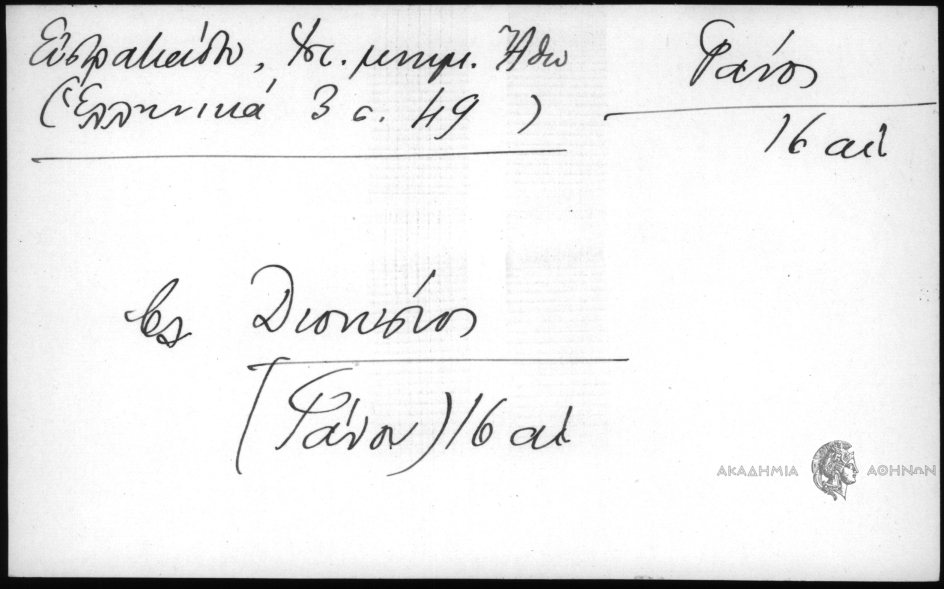 Εὐστρατιάδου, Ἱστ. μνημ. Ἄθω
(Ἑλληνικά 3 σ. 49)
Φάνος
16 αἰ
βλ Διονύσιος
(Φάνου) 16 αἰ
ΑΚΑΔΗΜΙΑ ΑΘΗΝΩΝ